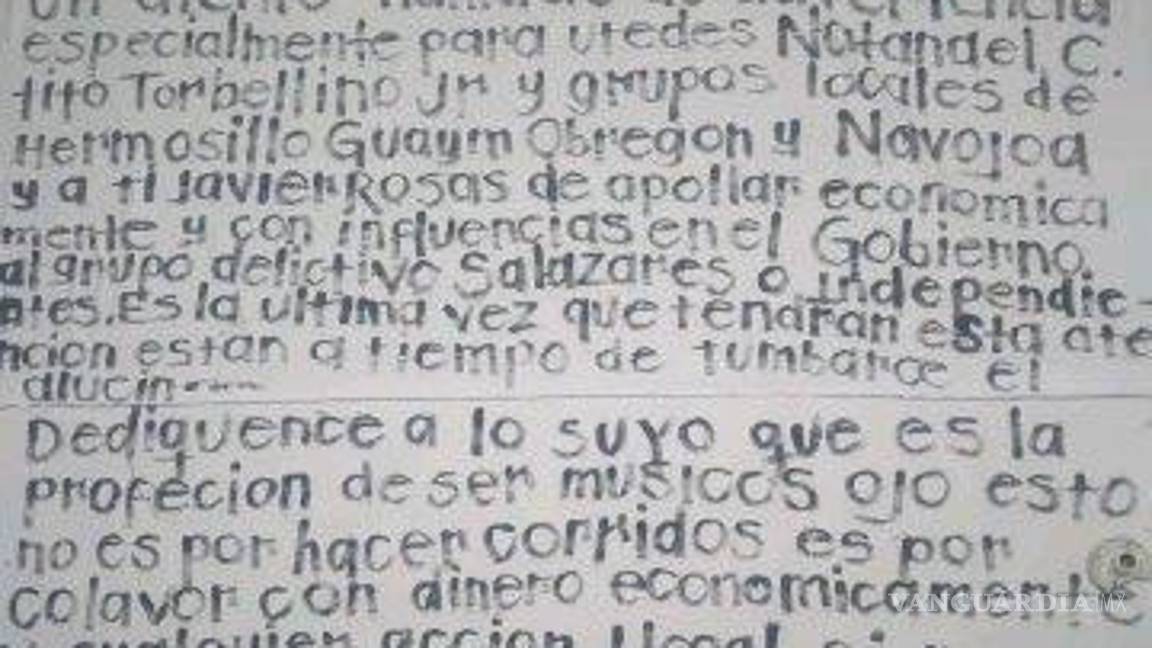 especialmente para utedes Natanael C.
tito Torbellino Jr y grupos locales de
Hermosillo Guaym Obregon y Navojoa
y a ti Javier Rosas de apollar economica
mente y con influencias en el Gobierno.
al grupo delictivo Salazares o independie-
ntes. Es la ultima vez que tendran esta ate
ncion estan a tiempo de tumbarce el
alucin----
Dediquence a lo suyo que es la
profecion de ser musicos ojo esto
no es por hacer corridos es por
colavor con dinero economicamente
VANGUARDIA MX
y cualquier accion